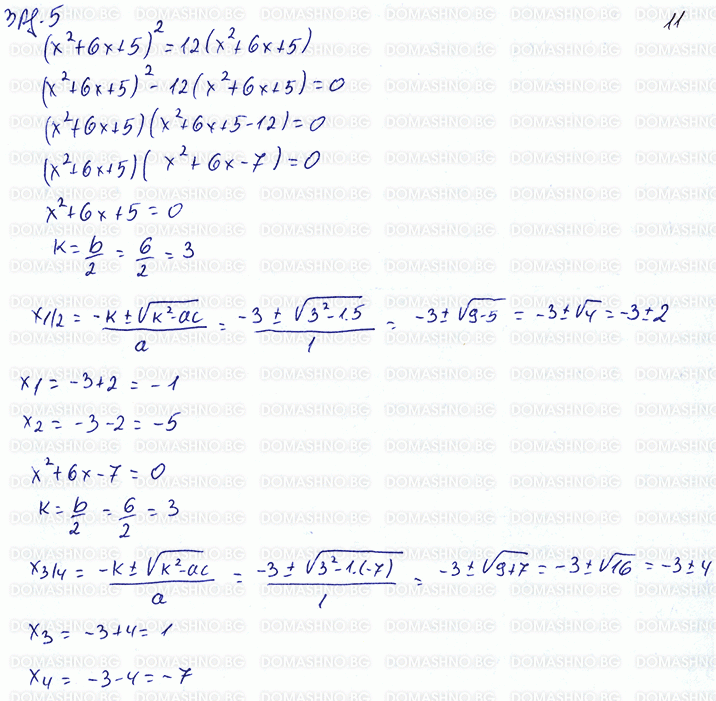 Зад. 5
11
(x²+6x+5)² = 12(x²+6x+5)
(x²+6x+5)² - 12(x²+6x+5) = 0
(x²+6x+5)(x²+6x+5-12) = 0
(x²+6x+5)(x²+6x-7) = 0
x²+6x+5 = 0
k = b/2 = 6/2 = 3
x1/2 = (-k ± √(k²-ac))/a = (-3 ± √(3²-1.5))/1 = -3 ± √(9-5) = -3 ± √4 = -3 ± 2
x1 = -3+2 = -1
x2 = -3-2 = -5
x²+6x-7 = 0
k = b/2 = 6/2 = 3
x3/4 = (-k ± √(k²-ac))/a = (-3 ± √(3²-1.(-7)))/1 = -3 ± √(9+7) = -3 ± √16 = -3 ± 4
x3 = -3+4 = 1
x4 = -3-4 = -7
DOMASHNO.BG